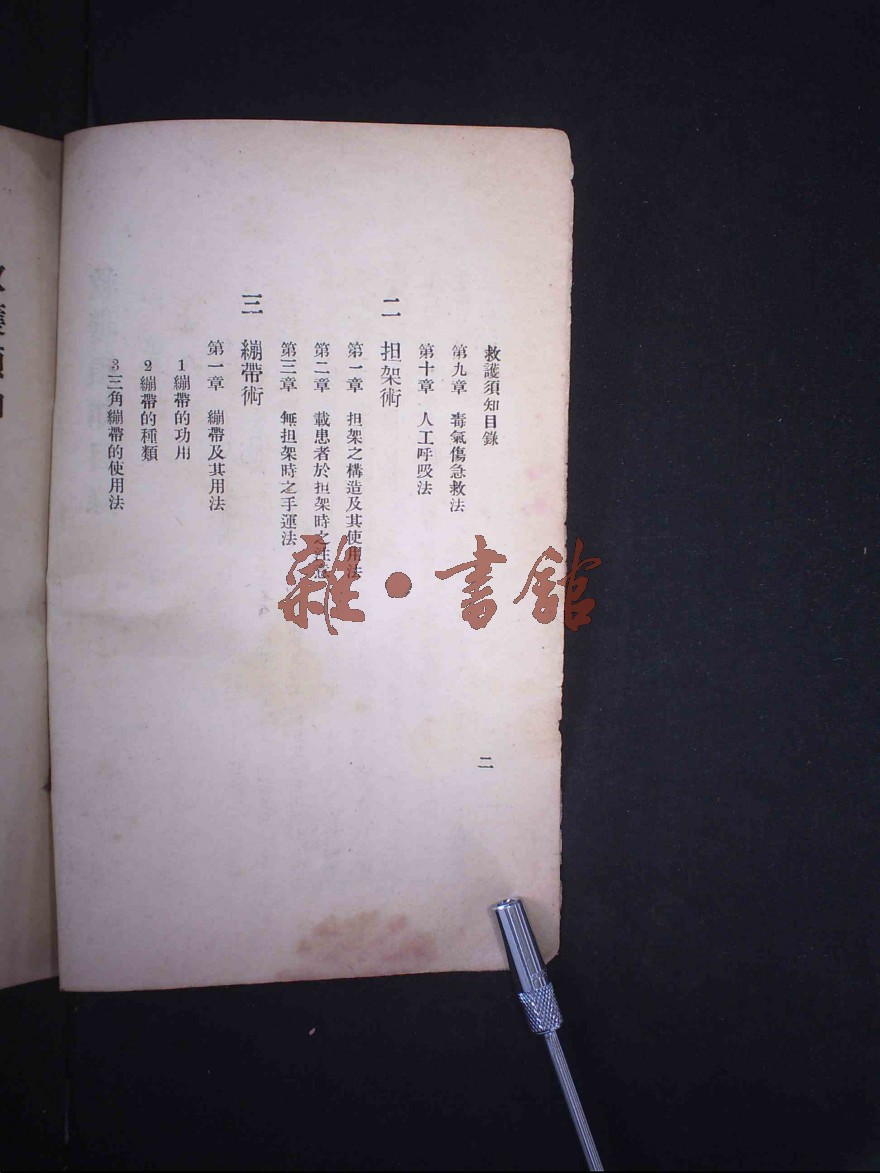 救護須知目錄
第九章　毒氣傷急救法
第十章　人工呼吸法
二　担架術
第一章　担架之構造及其使用法
第二章　載患者於担架時之注意
第三章　無担架時之手運法
三　繃帶術
第一章　繃帶及其用法
1 繃帶的功用
2 繃帶的種類
3 三角繃帶的使用法
二
雜・書館